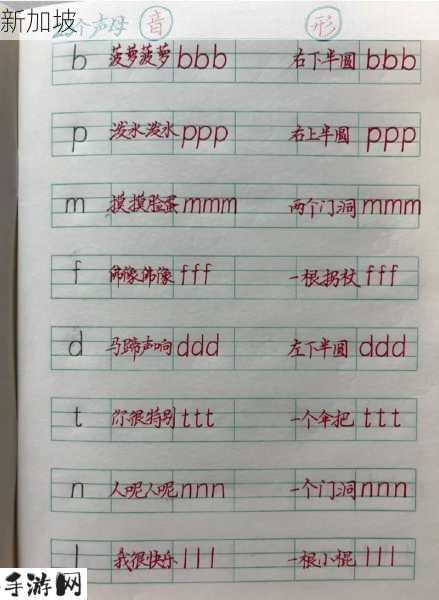 新加坡
23个声母 音 形
b 菠萝菠萝 bbb 右下半圆 bbb
p 泼水泼水 ppp 右上半圆 ppp
m 摸摸脸蛋 mmm 两个门洞 mmm
f 佛像佛像 fff 一根拐杖 fff
d 马蹄声响 ddd 左下半圆 ddd
t 你很特别 ttt 一个伞把 ttt
n 人呢人呢 nnn 一个门洞 nnn
l 我很快乐 lll 一根小棍 lll
手游网